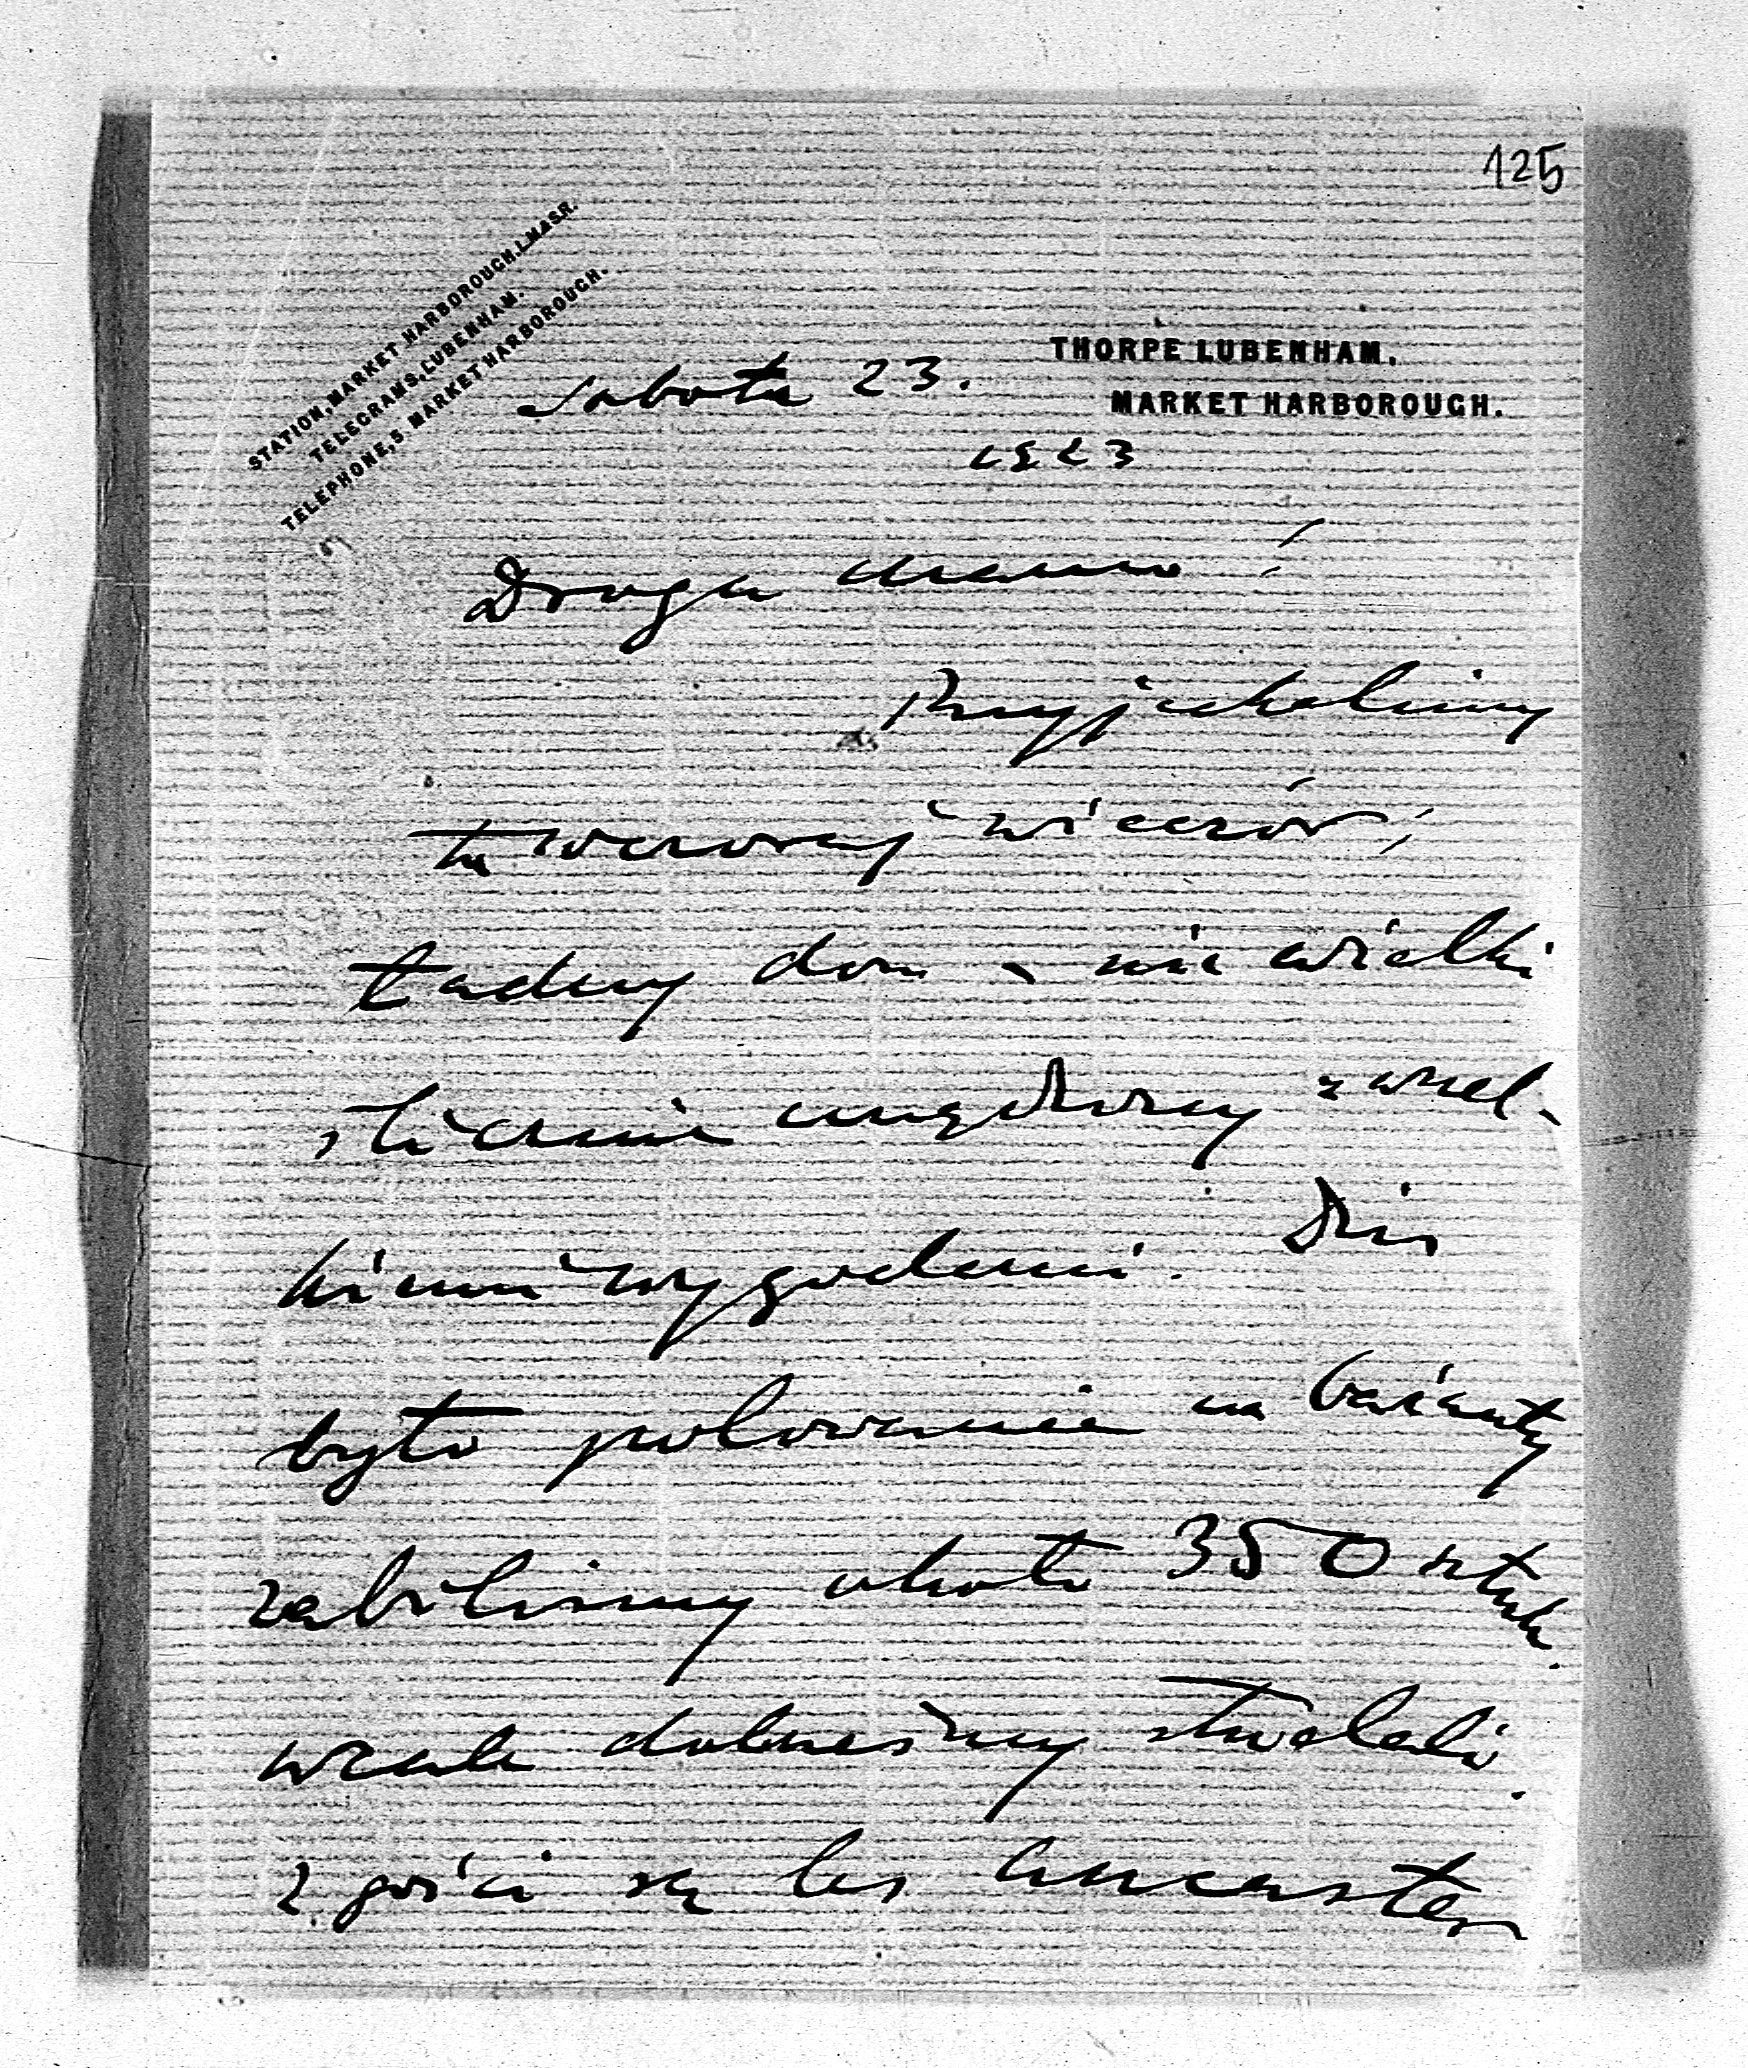 125
STATION, MARKET HARBOROUGH. L.M.&S.R.
TELEGRAMS, LUBENHAM.
TELEPHONE, 5 MARKET HARBOROUGH.
THORPE LUBENHAM.
MARKET HARBOROUGH.
sobota 23.
1923
Droga mamo!
Przyjechaliśmy
tu wczoraj wieczór;
ładny dom - nie wielki
ślicznie urządzony z wszel-
kiemi wygodami. Dziś
było polowanie na bażanty
zabiliśmy około 350 sztuk.
wcale dobrześmy strzelali.
z gości są les Ancaster